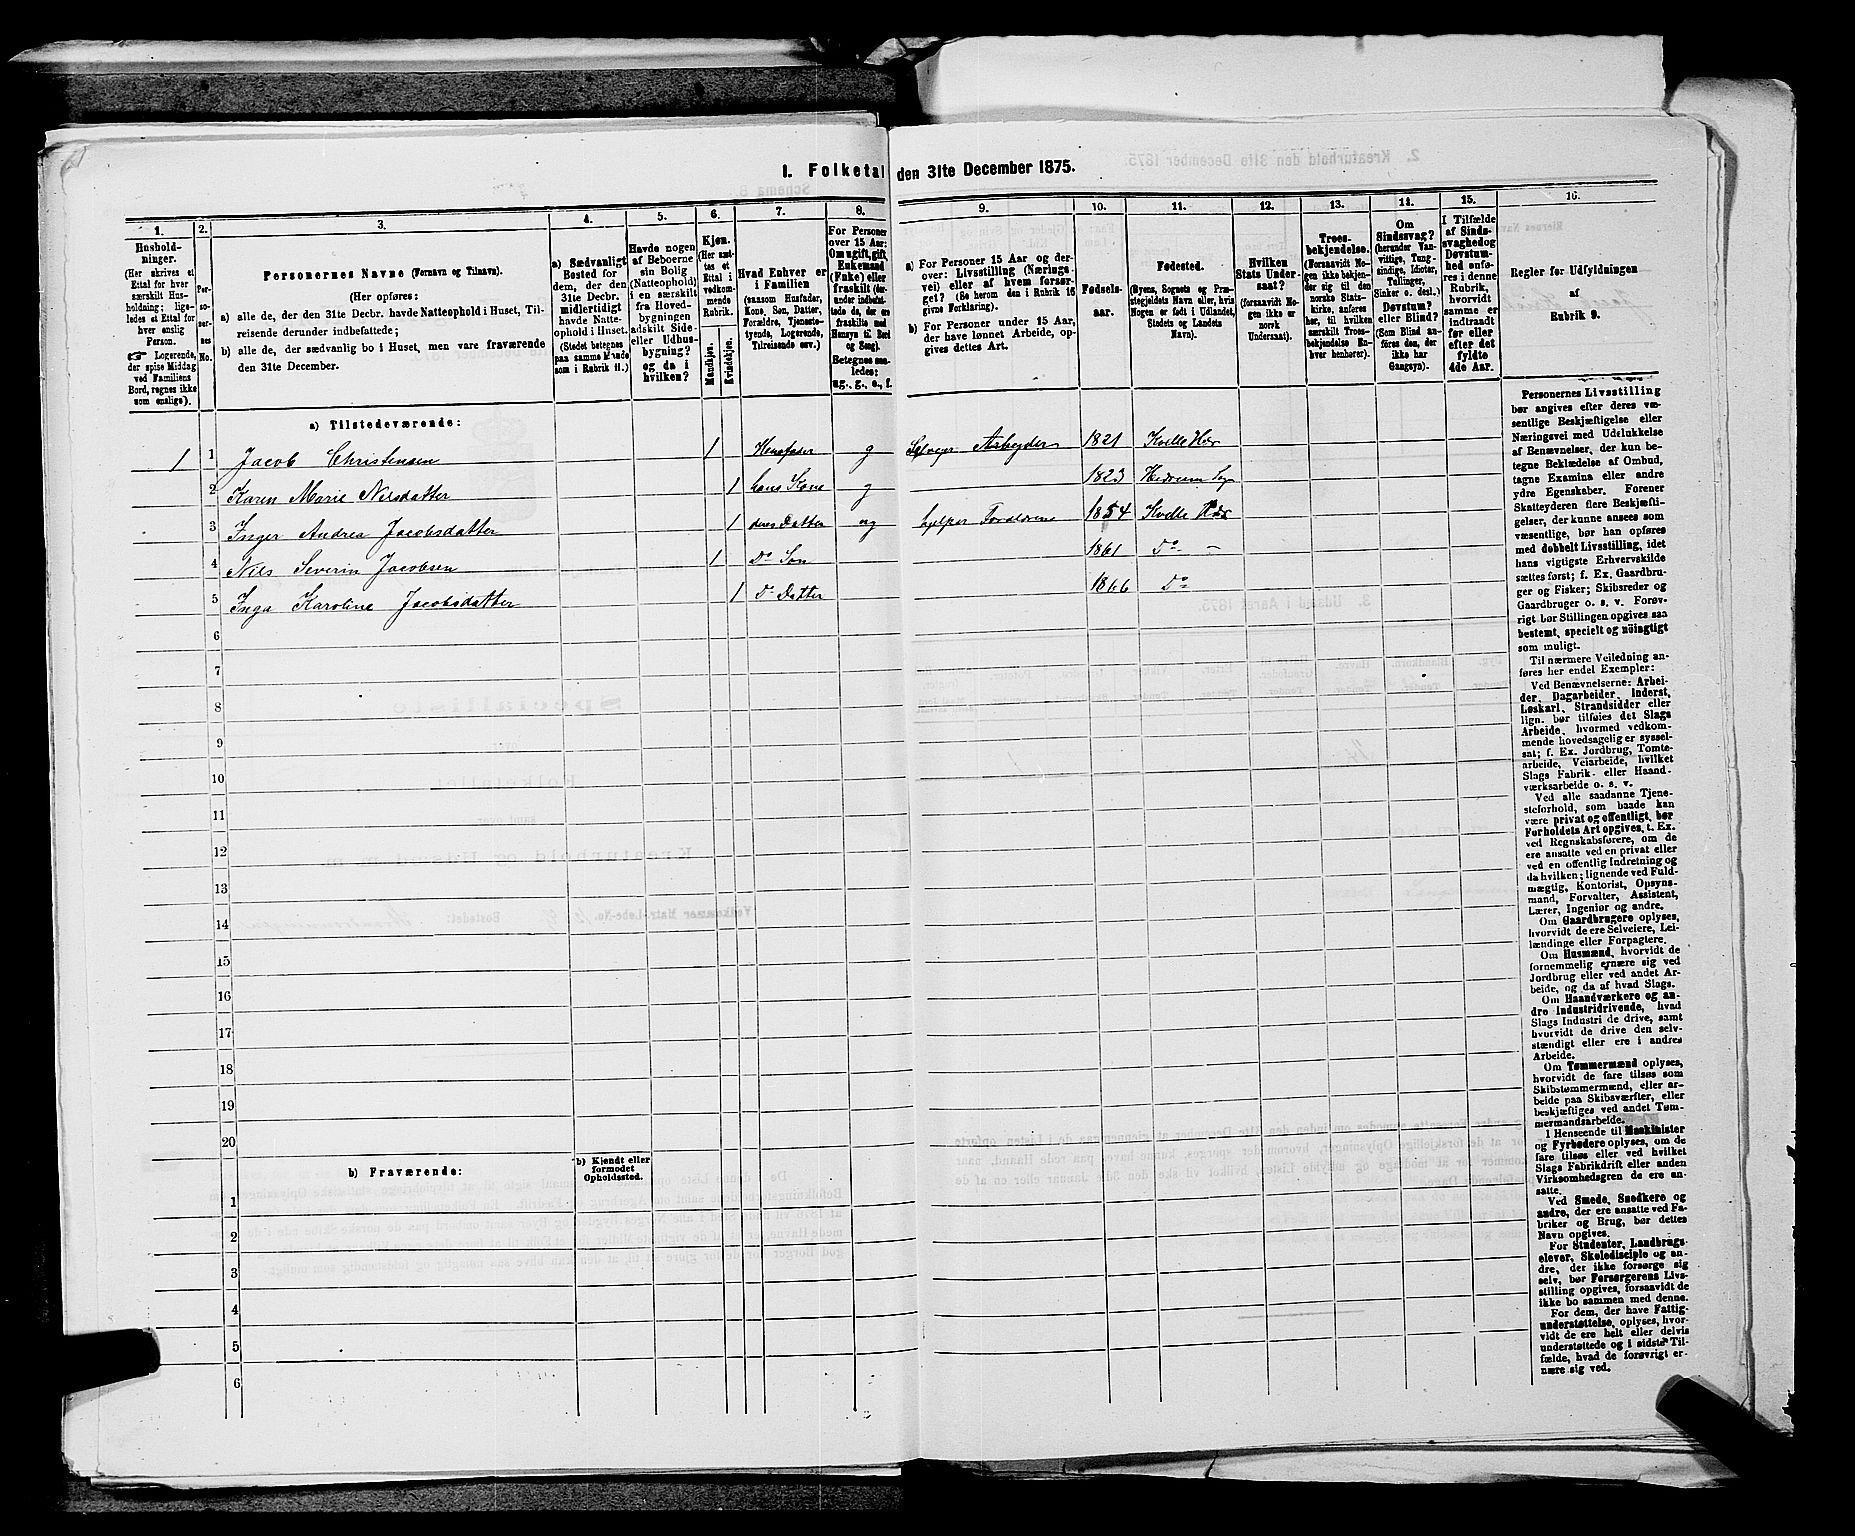 1. Folketal den 31te December 1875.
1.
Hushold-
ninger.
(Her skrives et
Ettal for hver
særskilt Hus-
holdning; lige-
ledes et Ettal for
hver enslig
Person.
☞ Logerende,
der spise Middag
ved Familiens
Bord, regnes ikke
som enslige).
2.
Per-
so-
ner-
nes
No.
3.
Personernes Navne (Fornavn og Tilnavn).
(Her opføres:
a) alle de, der den 31te Decbr. havde Natteophold i Huset, Til-
reisende derunder indbefattede;
b) alle de, der sædvanlig bo i Huset, men vare fraværende
den 31te December.
4.
a) Sædvanligt
Bosted for
dem, der den
31te Decbr.
midlertidigt
havde Natte-
ophold i Huset.
(Stedet betegnes
paa samme Maade
som i Rubrik 11.)
5.
Havde nogen
af Beboerne
sin Bolig
(Natteophold)
i en særskilt
fra Hoved-
bygningen
adskilt Side-
eller Udhus-
bygning?
og da i
hvilken?
6.
Kjøn.
(Her sæt-
tes et
Ettal i
vedkom-
mende
Rubrik.
Mandkjøn.
Kvindekjøn.
7.
Hvad Enhver er
i Familien
(saasom Husfader,
Kone, Søn, Datter,
Forældre, Tjeneste-
tyende, Logerende,
Tilreisende osv.)
8.
For Personer
over 15 Aar:
Om ugift, gift,
Enkemand
(Enke) eller
fraskilt
Betegnes saa-
ledes:
ug., g., e., f.
9.
a) For Personer 15 Aar og der-
over: Livsstilling (Nærings-
vei) eller af hvem forsør-
get? (Se herom den i Rubrik 16
givne Forklaring).
b) For Personer under 15 Aar,
der have lønnet Arbeide, op-
gives dettes Art.
10.
Fødsels-
aar.
11.
Fødested.
(Byens, Sognets og Præ-
stegjeldets Navn eller, hvis
Nogen er født i Udlandet,
Stedets og Landets
Navn).
12.
Hvilken
Stats Under-
saat?
(forsaavidt No-
gen ikke er
norsk
Undersaat).
13.
Troes-
bekjendelse.
(Forsaavidt No-
gen ikke bekjen-
der sig til den
norske Stats-
kirke, anføres
her, til hvilken
særskilt Troes-
bekjendelse En-
hver henhører).
14.
Om
Sindssvag?
(herunder Van-
vittige, Tung-
sindige, Idioter,
Sinker o. desl.)
Døvstum?
eller Blind?
(Som Blind an-
føres den, der
ikke har
Gangsyn).
15.
I Tilfælde
af Sinds-
svaghed og
Døvstum-
hed anfø-
res i denne
Rubrik,
hvorvidt
samme er
indtraadt
før eller
efter det
fyldte
4de Aar.
16.
Regler for Udfyldningen
af
Rubrik 9.
a) Tilstedeværende:
1 1 Jacob Christensen 1 Husfader g Selveier Arbeyder 1821 Kvelle Hdr
2 Karen Marie Nilsdatter 1 hans Kone g 1823 Hedrum
3 Inger Andrea Jacobsdatter 1 deres Datter ug hjelper Foreldrene 1854 Kvelle Hdr
4 Nils Severin Jacobsen 1 Do Søn 1861 Do —
5 Inga Karoline Jacobsdatter 1 Do Datter 1866 Do
6
7
8
9
10
11
12
13
14
15
16
17
18
19
20
b) Fraværende:
b) Kjendt eller
formodet
Opholdssted.
1
2
3
4
5
6
Personernes Livsstilling
bør angives efter deres væ-
sentlige Beskjæftigelse eller
Næringsvei med Udelukkelse
af Benævnelser, der kun be-
tegne Beklædelse af Ombud,
tagne Examina eller andre
ydre Egenskaber. Forener
Skatteyderen flere Beskjæfti-
gelser, der kunne ansees som
væsentlige, bør han opføres
med dobbelt Livsstilling, idet
hans vigtigste Erhvervskilde
sættes først; f. Ex. Gaardbru-
ger og Fisker; Skibsreder og
Gaardbruger o. s. v. Forøv-
rigt bør Stillingen opgives saa
bestemt, specielt og nöiagtigt
som muligt.
Til nærmere Veiledning an-
føres her endel Exempler:
Ved Benævnelserne: Arbei-
der, Dagarbeider, Inderst,
Løskarl, Strandsidder eller
lign. bør tilføies det Slags
Arbeide, hvormed vedkom-
mende hovedsagelig er syssel-
sat; f. Ex. Jordbrug, Tomte-
arbeide, Veiarbeide, hvilket
Slags Fabrik- eller Haand-
værksarbeide o. s. v.
Ved alle saadanne Tjene-
steforhold, som baade kan
være privat og offentligt, bør
Forholdets Art opgives, t. Ex.
ved Regnskabsførere, om de
ere ansatte ved en privat eller
ved en offentlig Indretning og
da hvilken; lignende ved Fuld-
mægtig, Kontorist, Opsyns-
mand, Forvalter, Assistent,
Lærer, Ingeniør og andre.
Om Gaardbrugere oplyses,
hvorvidt de ere Selveiere, Lei-
lændinge eller Forpagtere.
Om Husmænd, hvorvidt de
fornemmelig ernære sig ved
Jordbrug eller ved andet Ar-
beide, og da af hvad Slags.
Om Haandværkere og an-
dre Industridrivende, hvad
Slags Industri de drive, samt
hvorvidt de drive den selv-
stændigt eller ere i andres
Arbeide.
Om Tømmermænd oplyses,
hvorvidt de fare tilsøs som
Skibstømmermænd, eller ar-
beide paa Skibsværfter, eller
beskjæftiges ved andet Tøm-
mermandsarbeide.
I Henseende til Maskinister
og Fyrbødere oplyses, om de
fare tilsøs eller ved hvilket
Slags Fabrikdrift eller anden
Virksomhedsgren de ere an-
satte.
Ved Smede, Snedkere og
andre, der ere ansatte ved Fa-
briker og Brug, bør dettes
Navn opgives.
For Studenter, Landbrugs-
elever, Skoledisciple og an-
dre, der ikke forsørge sig
selv, bør Forsørgerens Livs-
stilling opgives, forsaavidt de
ikke bo sammen med denne.
For dem, der have Fattig-
understøttelse, oplyses, hvor-
vidt de ere helt eller delvis
understøttede og i sidste Til-
fælde, hvad de forøvrigt er-
nære sig ved.